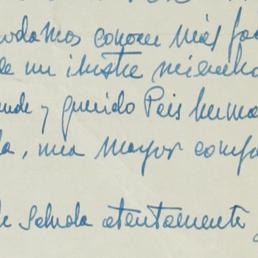 podamos conocer más fá
de un ilustre miembro
ande y querido País herma
la, una mayor comp
le saluda atentamente,